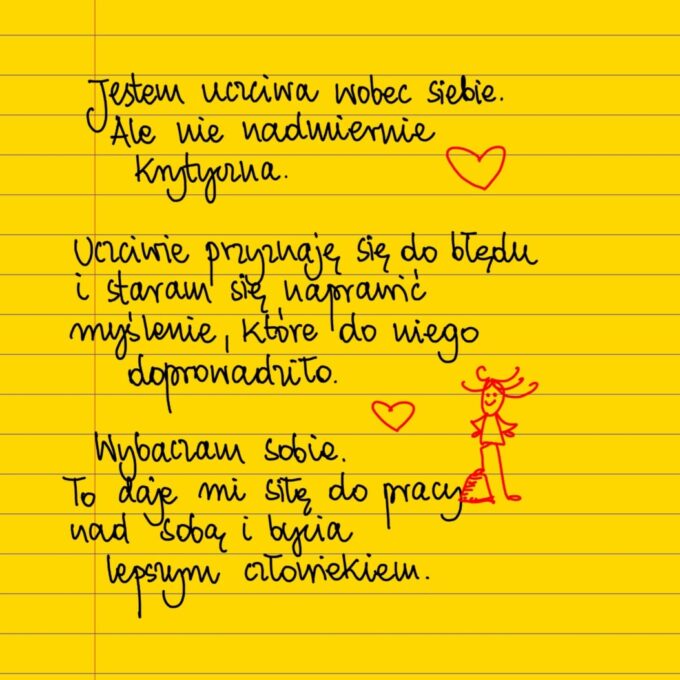 Jestem uczciwa wobec siebie.
Ale nie nadmiernie
krytyczna.
Uczciwie przyznaję się do błędu
i staram się naprawić
myślenie, które do niego
doprowadziło.
Wybaczam sobie.
To daje mi siłę do pracy
nad sobą i bycia
lepszym człowiekiem.